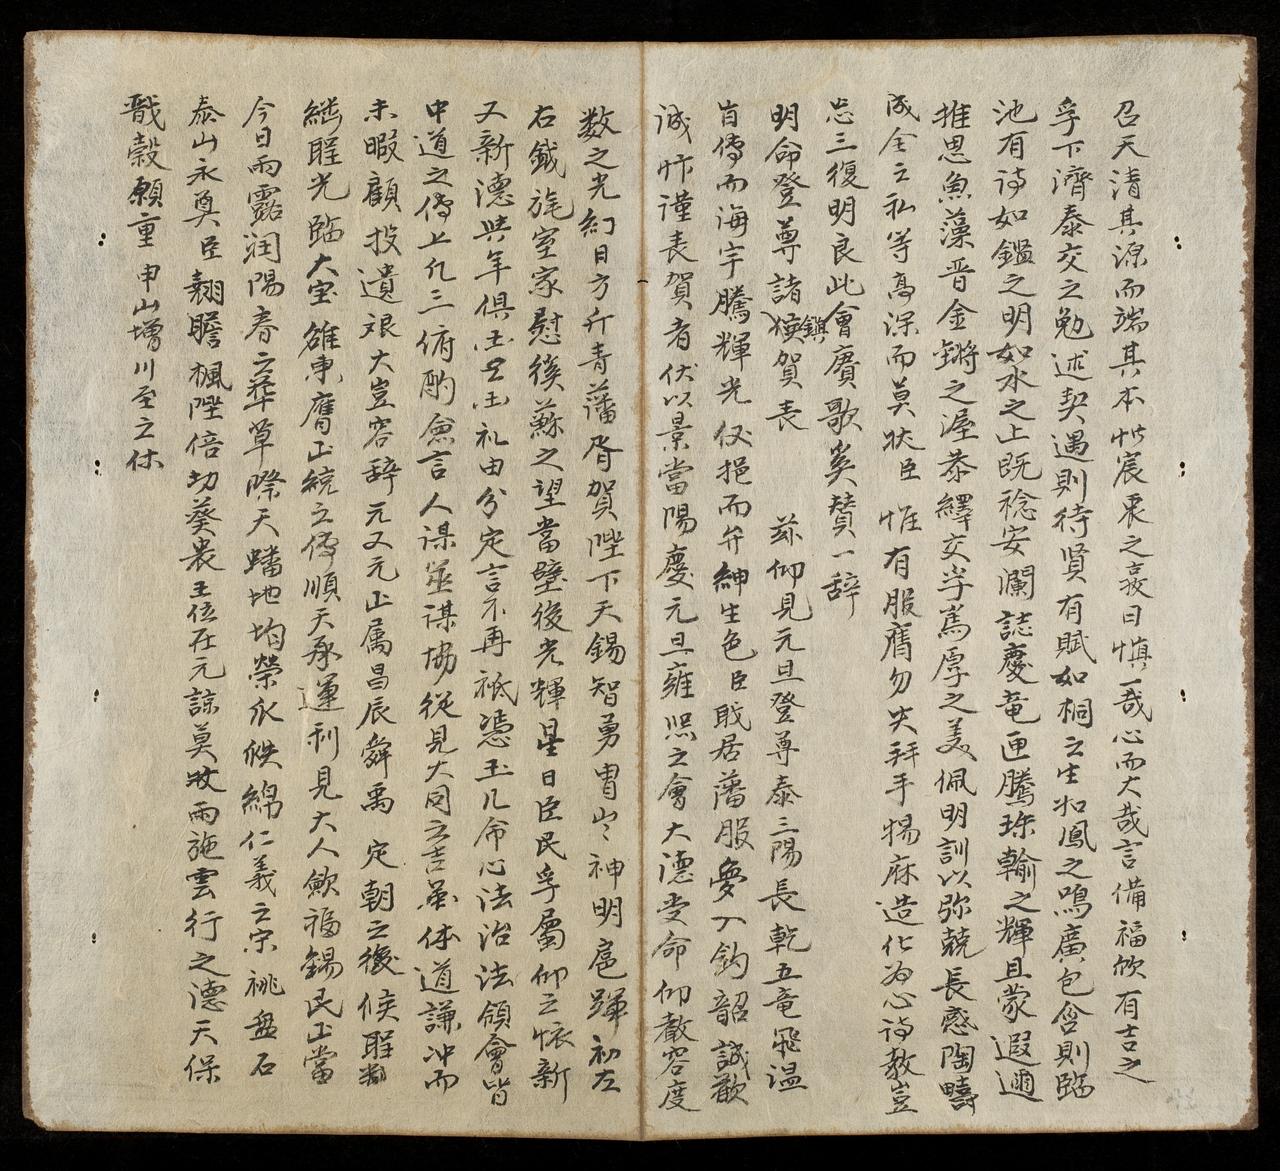 召天清其源而端其本惟宸衷之裒曰慎哉心而大哉言備福攸有吉之
孚下濟泰交之勉述契遇則待賢有賦如桐之生如鳳之鳴廣包含則臨
池有詩如鑑之明如水之止既稔安瀾誌慶竜匣騰珠翰之輝且蒙遐邇
推思魚藻晋金鏘之渥恭繹交孚篤厚之美佩明訓以弥兢長感陶疇
成全之私等高深而莫状臣 惟有服膺勿失拜手揚麻造化為心詩教豈
忘三復明良此會賡歌奚賛一辞
明命登尊諸鎮候賀表 茲仰見元旦登尊泰三陽長乾五竜飛温
旨傳而海宇騰輝光仪挹而弁紳生色臣戝居藩服夢入鈞韶誠歡
誠忭謹表賀者伏以景當陽慶元旦雍熙之會大德受命仰㪫容度
数之光紅日方升青藩胥賀陛下天錫智勇冑出神明扈蹕初左
右鉞旄室家慰徯蘇之望當璧後光輝星日臣民孚屬仰之懷新
又新德與年俱 礼由分定言不再祗憑玉几命心法治法領會皆
中道之傳上凡三俯酌僉言人謀筮謀協従見大同之吉 体道謙冲而
未暇顧投遺艱大豈容辞元又元正属昌辰舜禹定朝之後候
 光臨大宝雒東膺正統之傳順天承運利見大人歛福錫民正當
今日雨露潤陽春之 草際天蟠地均榮 綿仁義之宗祧盤石
泰山永奠臣翹瞻楓陛倍切葵衷王位在元諒莫 雨施雲行之德天保
戩榖願重申山增川至之休